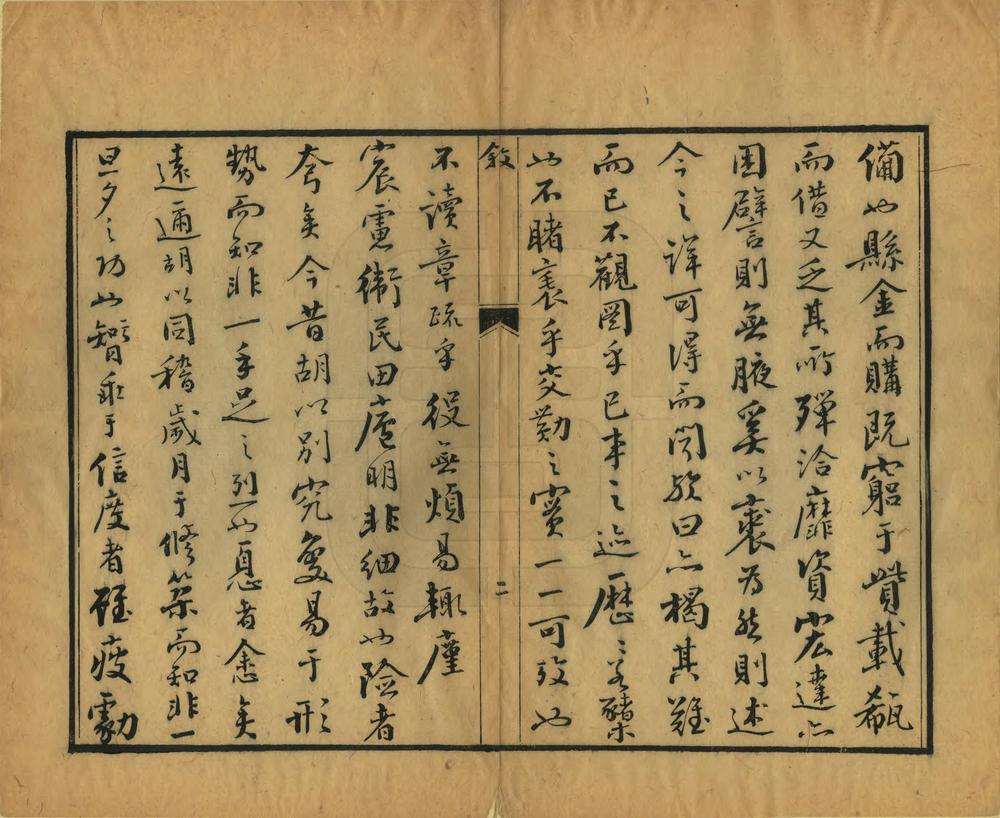 備也縣金而購既窮于貲載瓻
而借又乏其所殫洽靡資宏達亦
困譬則無腋奚以裘為然則述
今之詳可得而聞歟曰亦揭其難
而已不觀圖乎已事之迹歷歷若櫫
也不睹表乎勤之實一一可攷也
敘
二
不讀章疏乎役無煩易輒廑
宸慮衛民田廬明非細故也險者
夸矣今昔胡以別究夐易于形
勢而知非一手足之烈也者愈矣
遠邇胡以同稽歲月于修築而知非一
旦夕之功也智乖于信度者疲勩